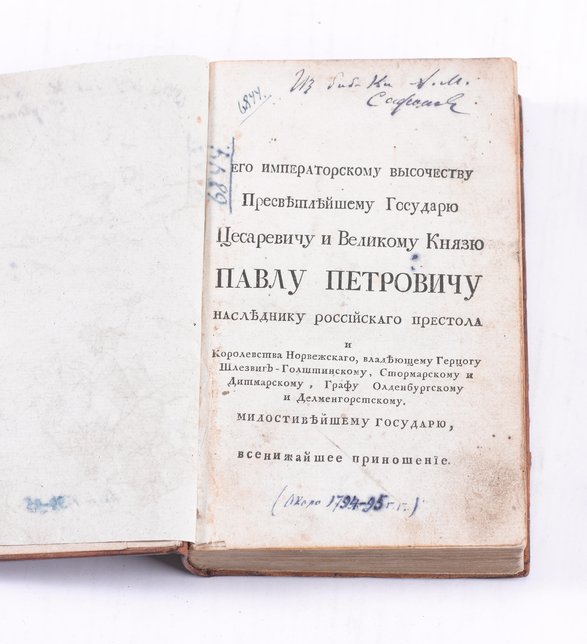 6844.
Из биб-ки А. М.
6844
ЕГО ИМПЕРАТОРСКОМУ ВЫСОЧЕСТВУ
Пресвѣтлѣйшему Государю
Цесаревичу и Великому Князю
ПАВЛУ ПЕТРОВИЧУ
НАСЛѢДНИКУ РОССІЙСКАГО ПРЕСТОЛА
и
Королевства Норвежскаго, владѣющему Герцогу
Шлезвигъ-Голштинскому, Стормарскому и
Дитмарскому, Графу Олденбургскому
и Делменгорстскому.
МИЛОСТИВѢЙШЕМУ ГОСУДАРЮ,
всенижайшее приношеніе.
(Около 1794-95 г.г.)